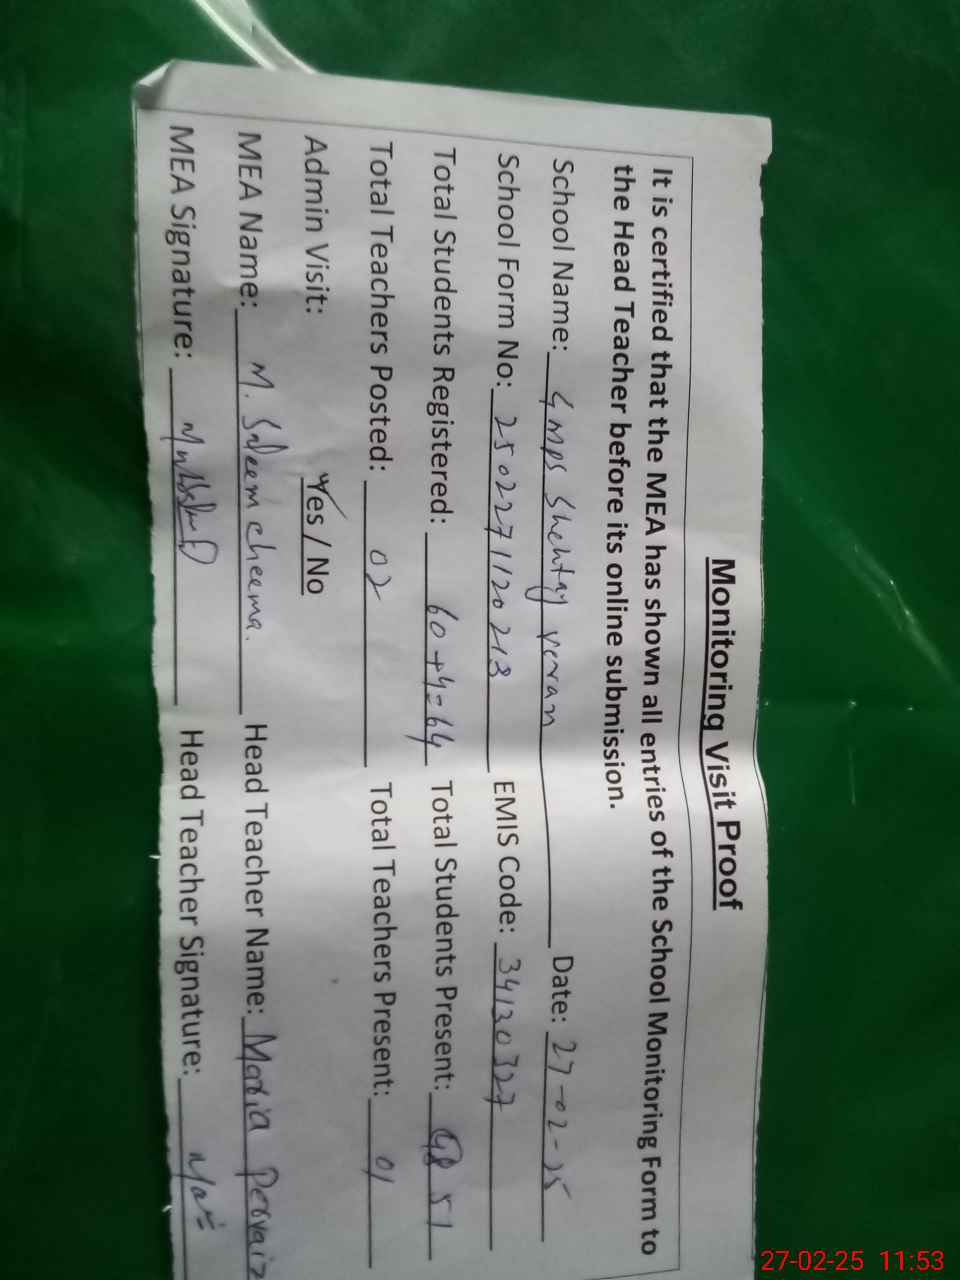 Monitoring Visit Proof
It is certified that the MEA has shown all entries of the School Monitoring Form to
the Head Teacher before its online submission.
School Name: GMPS Shehtay veran Date: 27-02-25
School Form No: 250227112021 EMIS Code: 34130327
Total Students Registered: 60+4=64 Total Students Present: 51
Total Teachers Posted: 02 Total Teachers Present: 01
Admin Visit: Yes / No
MEA Name: M. Saleem cheema. Head Teacher Name: Maria Pervaiz
MEA Signature: Head Teacher Signature:
27-02-25 11:53